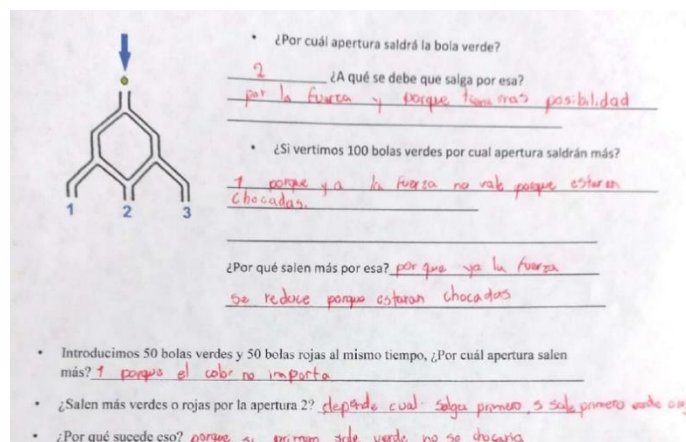 • ¿Por cuál apertura saldrá la bola verde?
2 ¿A qué se debe que salga por esa?
por la fuerza y porque tiene mas posibilidad
• ¿Si vertimos 100 bolas verdes por cual apertura saldrán más?
1 porque ya la fuerza no vale porque estaran
chocadas.
1 2 3
¿Por qué salen más por esa? por que ya la fuerza
se reduce porque estaran chocadas
• Introducimos 50 bolas verdes y 50 bolas rojas al mismo tiempo, ¿Por cuál apertura salen
más? 1 porque el color no importa
• ¿Salen más verdes o rojas por la apertura 2? depende cual salga primero, s sale primero verde
• ¿Por qué sucede eso? porque si primero sale verde no se chocaria